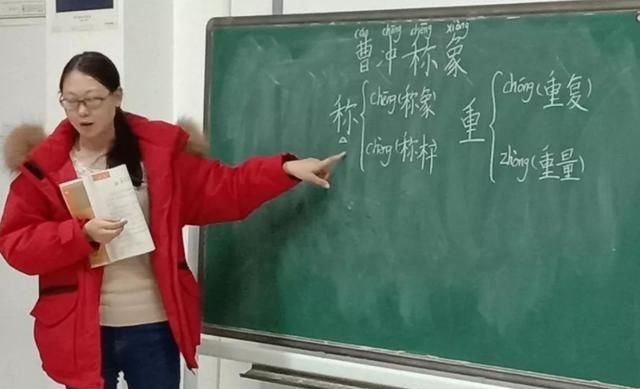 cáo chōng chēng xiàng
曹冲称象
称
chēng(称象)
重
chóng(重复)
zhòng(重量)